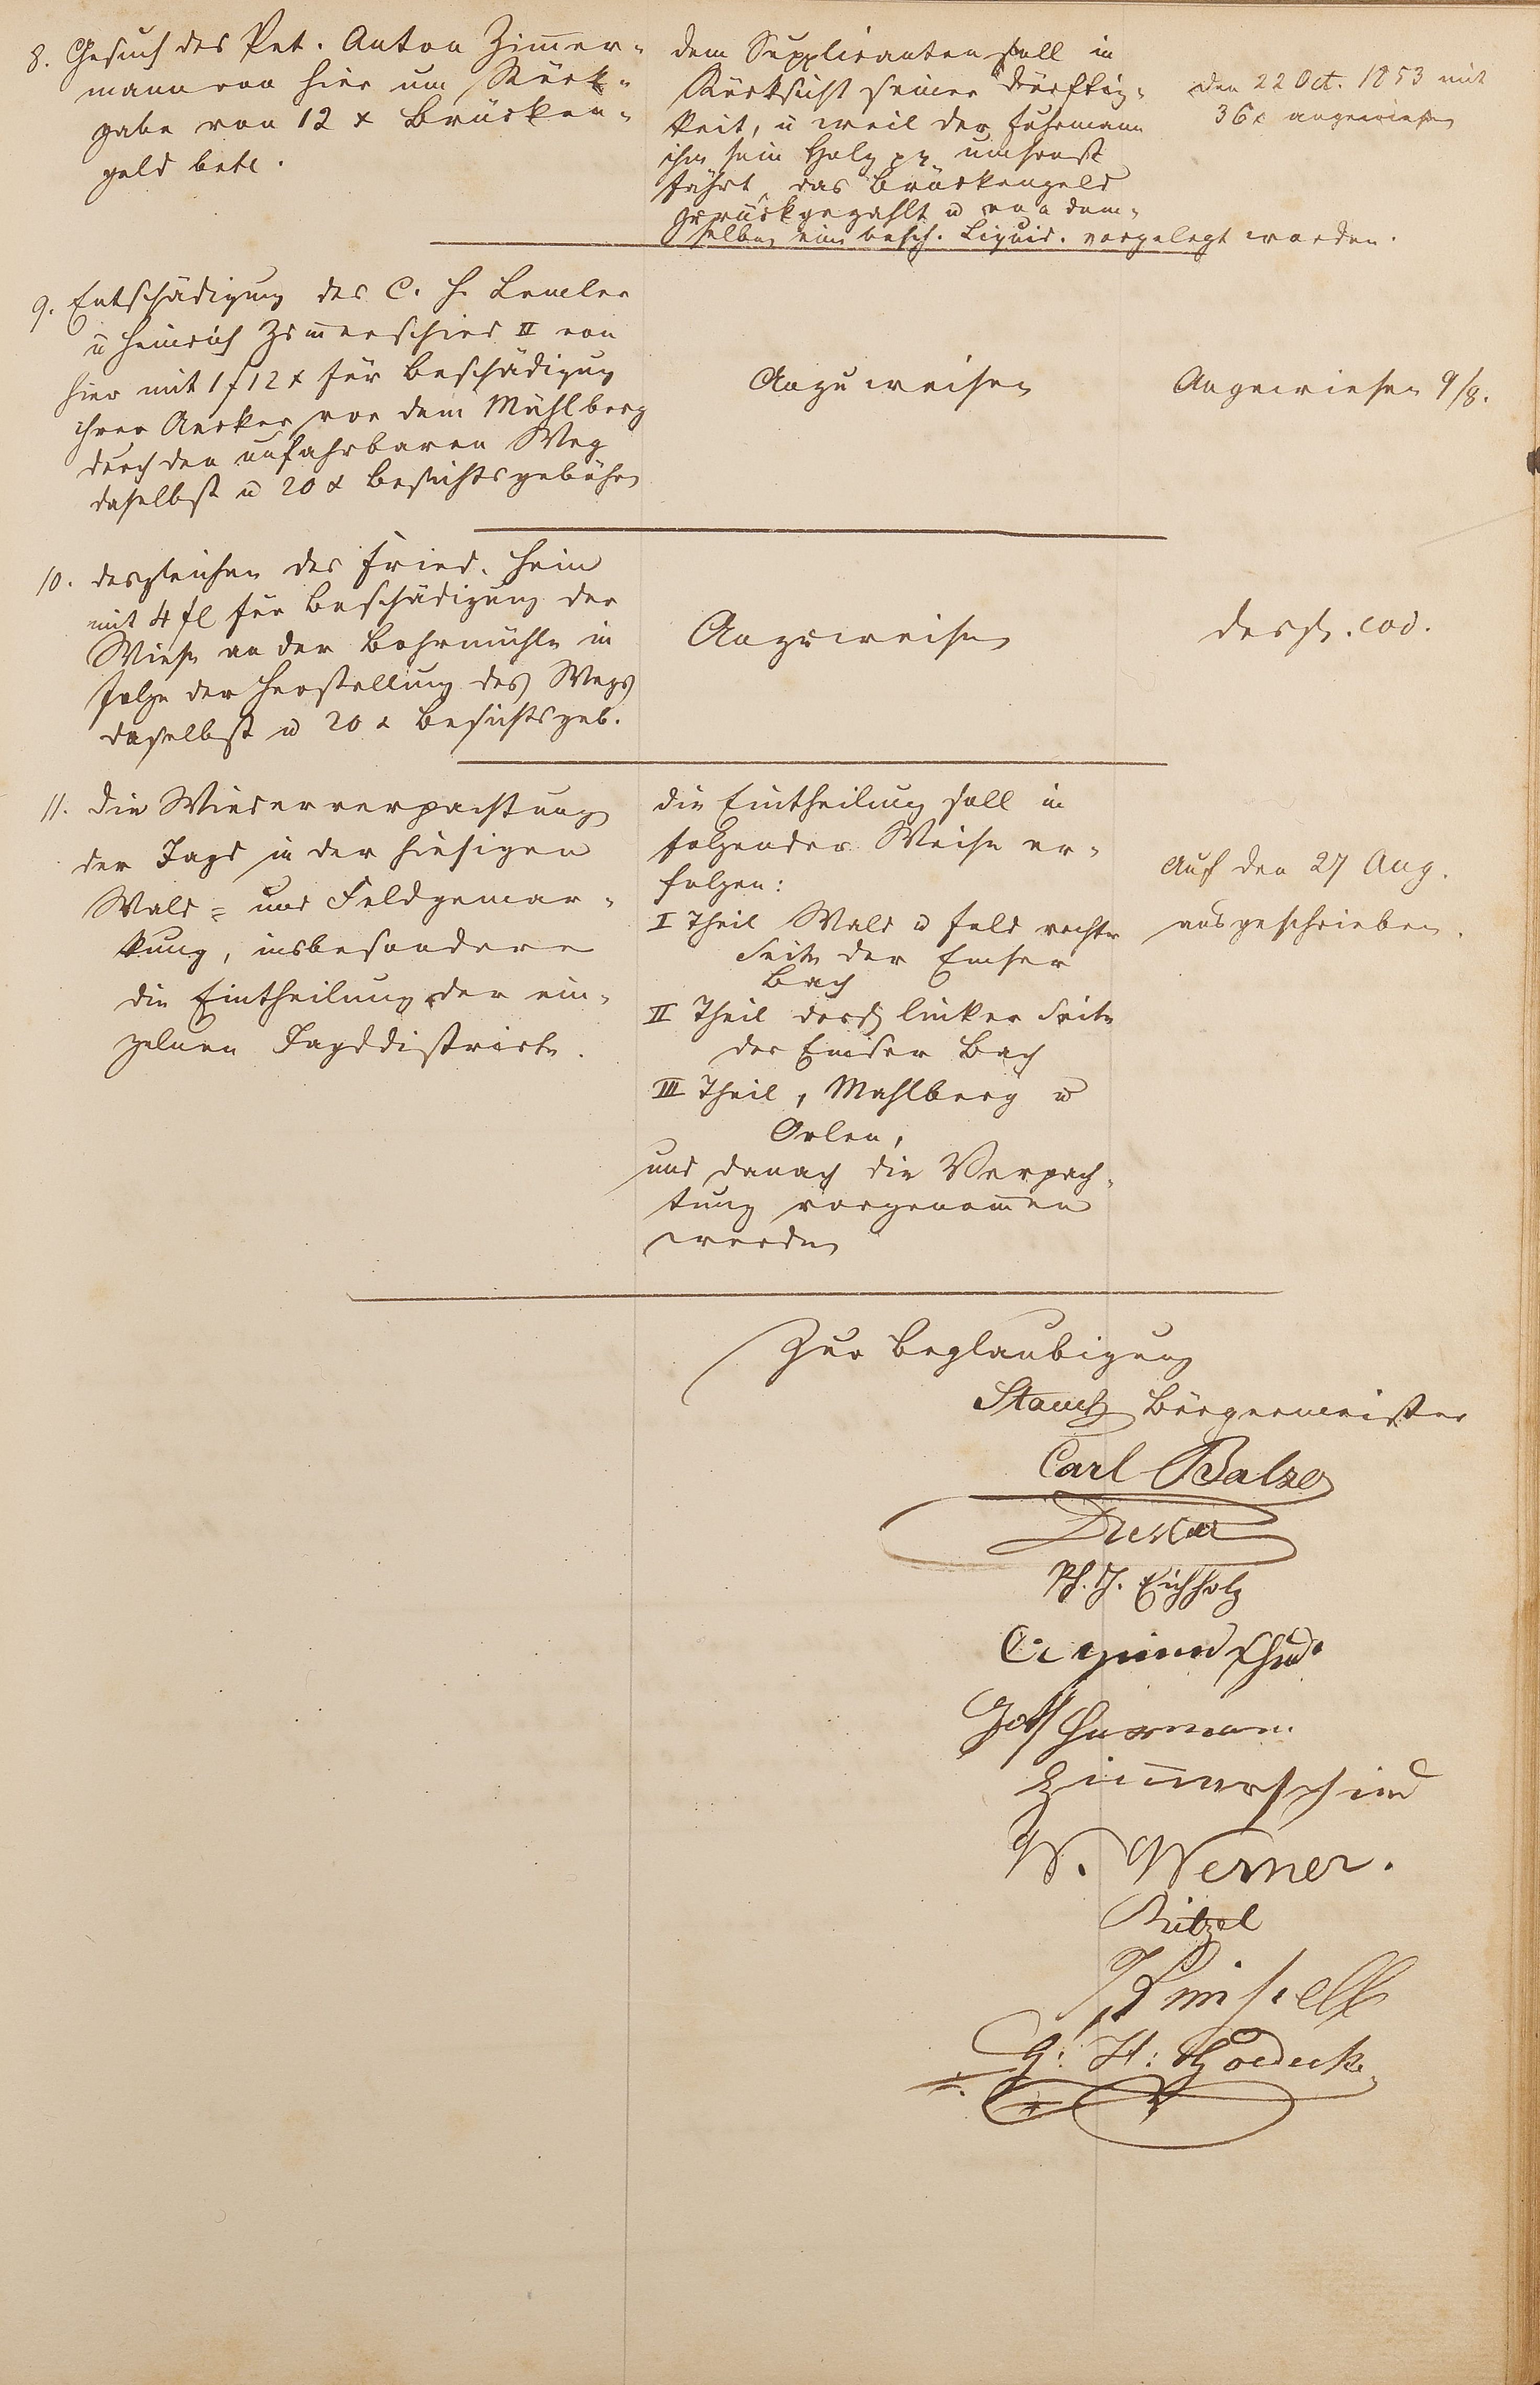 8. Gesuch des Pet. Anton Zim̅er-
mann von hier um Rück-
gabe von 12 x Brücken-
geld betr.
dem Supplicanten soll in
Rücksicht seiner Dürftig-
keit, u weil der Fuhrmann
ihm sein Holz umsonst
fährt, das Brückengeld
zurückgezahlt u von dem-
selben eine besch. Liquid. vorgelegt werden.
den 22 Oct. 1853 mit
36 x angewiesen
9. Entschädigung des C. H. Lemler
u Heinrich Zim̅erschied II von
hier mit 1 f 12 x für Beschädigung
ihrer Aecker vor dem Mühlberg
durch den unfahrbaren Weg
daselbst u 20 x Besichtsgebühr
Anzuweisen
Angewiesen 9/8.
10. desgleichen des Fried. Hein
mit 4 fl für Beschädigung der
Wiese an der Bohrmühle in
Folge der Herstellung des Wegs
daselbst u 20 x Besichtsgeb.
Anzuweisen
desgl. eod.
11. die Wiederverpachtung
der Jagd in der hiesigen
Wald- und Feldgemar-
kung, insbesondere
die Eintheilung der ein-
zelnen Jagddistricte.
die Eintheilung soll in
folgender Weise er-
folgen:
I Theil Wald u Feld rechte
Seite der Emser
Bach
II Theil desgl linker Seite
der Emser Bach
III Theil, Mahlberg u
Orlen,
und danach die Verpach-
tung vorgenom̅en
werden
Auf den 27 Aug.
ausgeschrieben.
Zur Beglaubigung
Bürgermeister
Carl Balzer
Ph. Eichholz
Zim̅erschied
W. Werner.
Ritzel
G: H: Goedecke